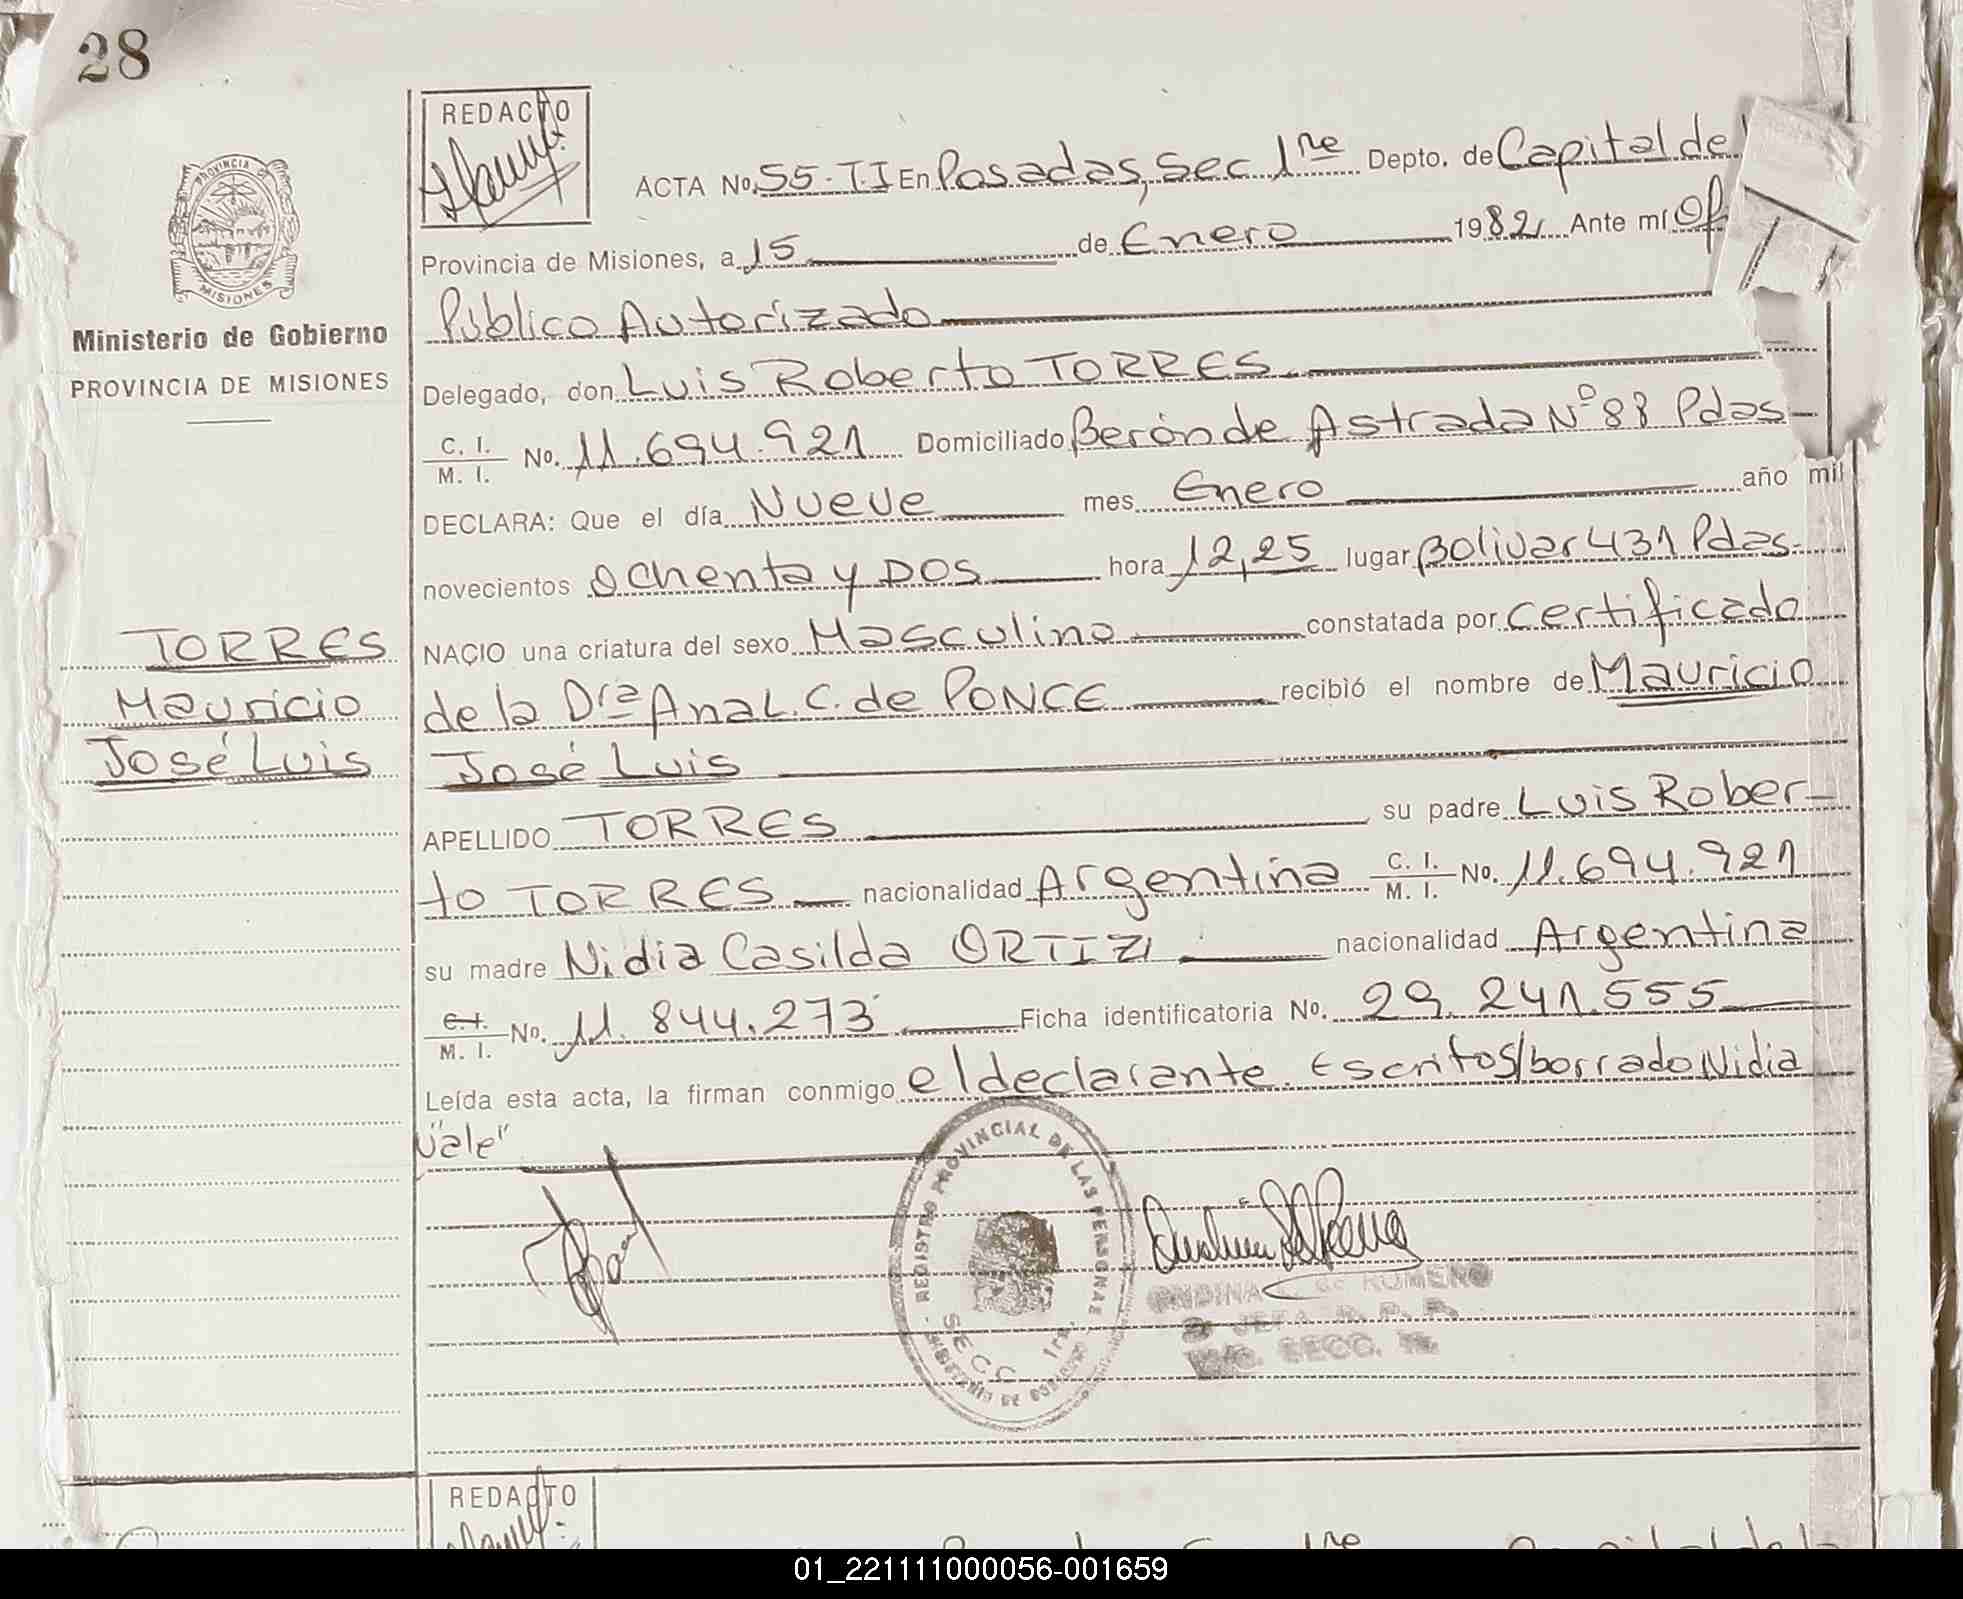 28
REDACTO
PROVINCIA DE
MISIONES
Ministerio de Gobierno
PROVINCIA DE MISIONES
TORRES
Mauricio
José Luis
ACTA No. 55-T.I En Posadas, Sec 1re Depto. de Capital de
Provincia de Misiones, a 15 de Enero 1982 Ante mí Of
Público Autorizado
Delegado, don Luis Roberto TORRES
C. I. / M. I. No. 11.694.921 Domiciliado Berón de Astrada Nº 88 Pdas
DECLARA: Que el día Nueve mes Enero año mil
novecientos Ochenta y DOS hora 12,25 lugar Bolivar 431 Pdas.
NACIO una criatura del sexo Masculino constatada por certificado
de la Dra Ana L. C. de PONCE recibió el nombre de Mauricio
José Luis
APELLIDO TORRES su padre Luis Rober-
to TORRES nacionalidad Argentina C. I. / M. I. No. 11.694.921
su madre Nidia Casilda ORTIZ nacionalidad Argentina
C. I. / M. I. No. 11.844.273 Ficha identificatoria No. 29.241.555
Leída esta acta, la firman conmigo el declarante. Escritos/borrado Nidia
"vale"
REGISTRO PROVINCIAL DE LAS PERSONAS
SECC 1ra.
MINISTERIO DE GOBIERNO
ONDINA de ROMERO
JEFA R. P. P.
SECC.
REDACTO
01_221111000056-001659